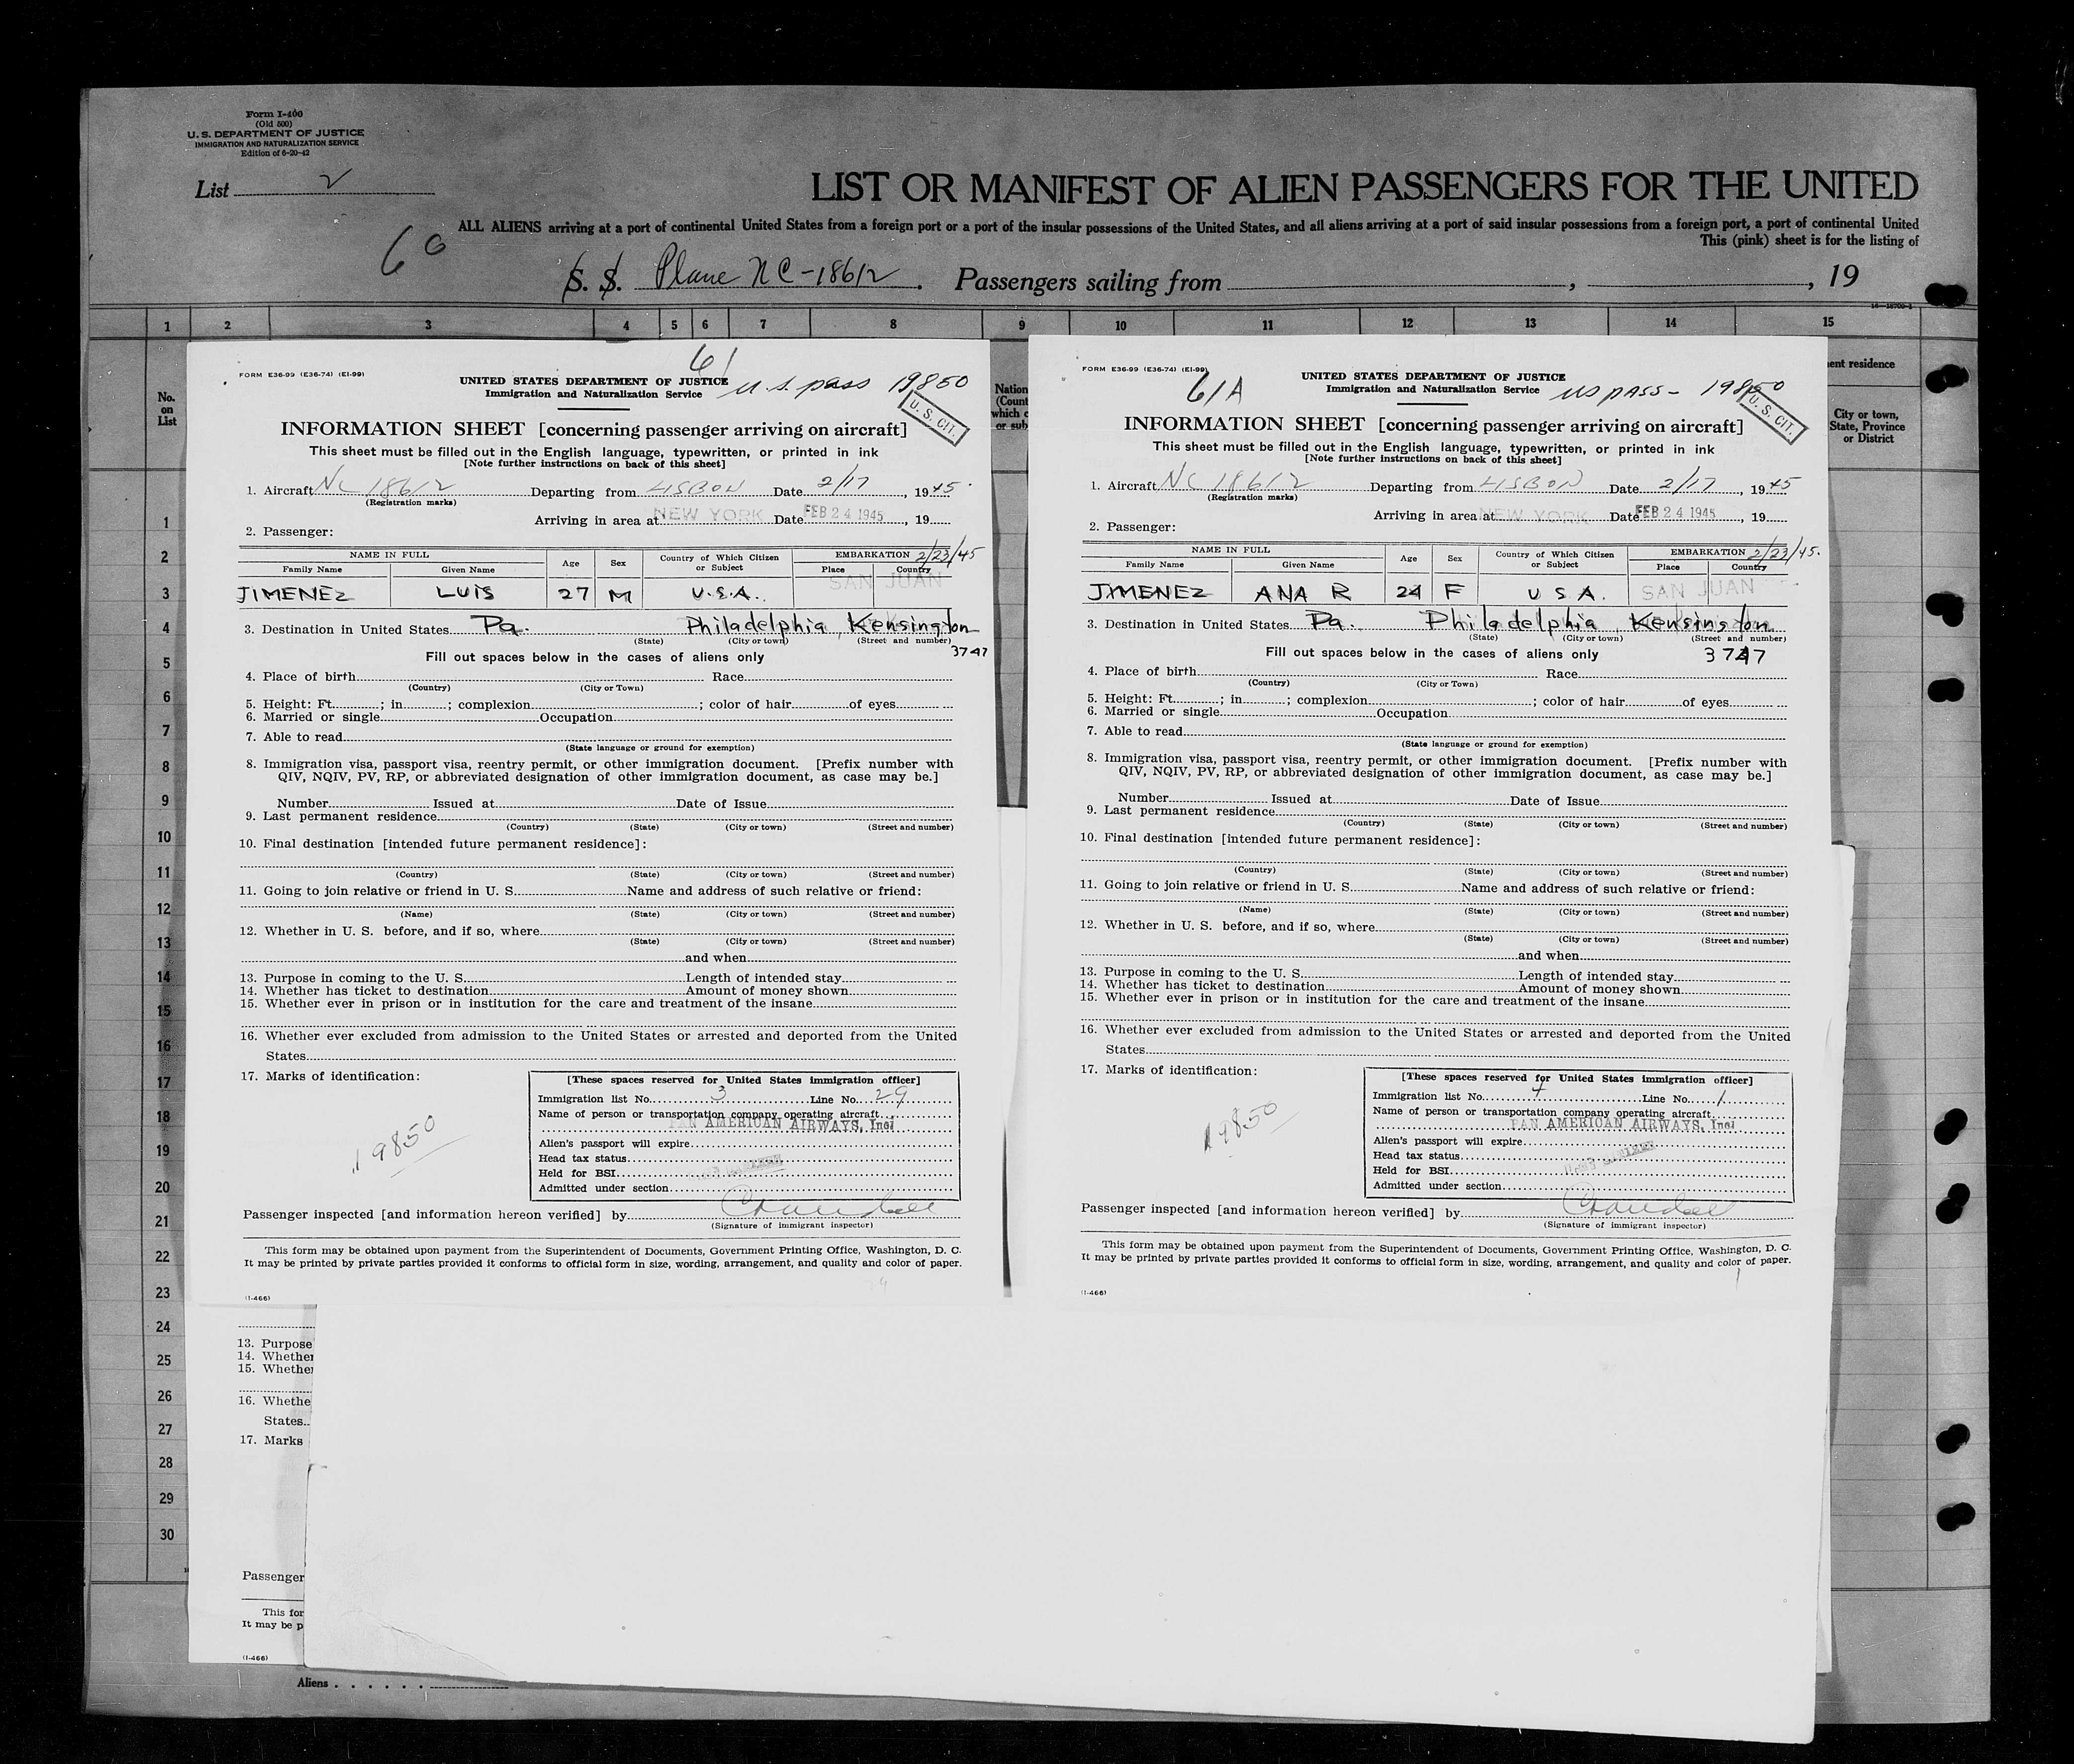 Form I-400
(Old 500)
U. S. DEPARTMENT OF JUSTICE
IMMIGRATION AND NATURALIZATION SERVICE
Edition of 6-20-42
List 2
LIST OR MANIFEST OF ALIEN PASSENGERS FOR THE UNITED
ALL ALIENS arriving at a port of continental United States from a foreign port or a port of the insular possessions of the United States, and all aliens arriving at a port of said insular possessions from a foreign port, a port of continental United
This (pink) sheet is for the listing of
60
S. S. Plane NC-18612. Passengers sailing from , , 19
1 2 3 4 5 6 7 8 9 10 11 12 13 14 15
No.
on
List
Nation
(Count
which c
or sub
ent residence
City or town,
State, Province
or District
1
2
3
4
5
6
7
8
9
10
11
12
13
14
15
16
17
18
19
20
21
22
23
24
25
26
27
28
29
30
61
FORM E36-99 (E36-74) (EI-99)
UNITED STATES DEPARTMENT OF JUSTICE
Immigration and Naturalization Service
U.S. pass 19850
U. S. CIT.
INFORMATION SHEET [concerning passenger arriving on aircraft]
This sheet must be filled out in the English language, typewritten, or printed in ink
[Note further instructions on back of this sheet]
1. Aircraft NC 18612 Departing from LISBON Date 2/17, 1945
(Registration marks)
Arriving in area at NEW YORK Date FEB 24 1945, 19
2. Passenger:
NAME IN FULL Age Sex Country of Which Citizen or Subject EMBARKATION 2/23/45
Family Name Given Name Place Country
SAN JUAN
JIMENEZ LUIS 27 M U.S.A.
3. Destination in United States Pa. Philadelphia, Kensington
(State) (City or town) (Street and number)
3747
Fill out spaces below in the cases of aliens only
4. Place of birth Race
(Country) (City or Town)
5. Height: Ft. ; in ; complexion ; color of hair of eyes
6. Married or single Occupation
7. Able to read
(State language or ground for exemption)
8. Immigration visa, passport visa, reentry permit, or other immigration document. [Prefix number with
QIV, NQIV, PV, RP, or abbreviated designation of other immigration document, as case may be.]
Number Issued at Date of Issue
9. Last permanent residence
(Country) (State) (City or town) (Street and number)
10. Final destination [intended future permanent residence]:
(Country) (State) (City or town) (Street and number)
11. Going to join relative or friend in U. S. Name and address of such relative or friend:
(Name) (State) (City or town) (Street and number)
12. Whether in U. S. before, and if so, where
(State) (City or town) (Street and number)
and when
13. Purpose in coming to the U. S. Length of intended stay
14. Whether has ticket to destination Amount of money shown
15. Whether ever in prison or in institution for the care and treatment of the insane
16. Whether ever excluded from admission to the United States or arrested and deported from the United
States
17. Marks of identification:
19850
[These spaces reserved for United States immigration officer]
Immigration list No. 3 Line No. 29
Name of person or transportation company operating aircraft
PAN AMERICAN AIRWAYS, Inc.
Alien's passport will expire
Head tax status
Held for BSI
Admitted under section
Passenger inspected [and information hereon verified] by
(Signature of immigrant inspector)
This form may be obtained upon payment from the Superintendent of Documents, Government Printing Office, Washington, D. C.
It may be printed by private parties provided it conforms to official form in size, wording, arrangement, and quality and color of paper.
29
(I-466)
FORM E36-99 (E36-74) (EI-99)
61A
UNITED STATES DEPARTMENT OF JUSTICE
Immigration and Naturalization Service
US PASS - 19850
U. S. CIT.
INFORMATION SHEET [concerning passenger arriving on aircraft]
This sheet must be filled out in the English language, typewritten, or printed in ink
[Note further instructions on back of this sheet]
1. Aircraft NC 18612 Departing from LISBON Date 2/17, 1945
(Registration marks)
Arriving in area at NEW YORK Date FEB 24 1945, 19
2. Passenger:
NAME IN FULL Age Sex Country of Which Citizen or Subject EMBARKATION 2/23/45.
Family Name Given Name Place Country
JIMENEZ ANA R 24 F U S A. SAN JUAN
3. Destination in United States Pa. Philadelphia, Kensington
(State) (City or town) (Street and number)
Fill out spaces below in the cases of aliens only 3747
4. Place of birth Race
(Country) (City or Town)
5. Height: Ft. ; in ; complexion ; color of hair of eyes
6. Married or single Occupation
7. Able to read
(State language or ground for exemption)
8. Immigration visa, passport visa, reentry permit, or other immigration document. [Prefix number with
QIV, NQIV, PV, RP, or abbreviated designation of other immigration document, as case may be.]
Number Issued at Date of Issue
9. Last permanent residence
(Country) (State) (City or town) (Street and number)
10. Final destination [intended future permanent residence]:
(Country) (State) (City or town) (Street and number)
11. Going to join relative or friend in U. S. Name and address of such relative or friend:
(Name) (State) (City or town) (Street and number)
12. Whether in U. S. before, and if so, where
(State) (City or town) (Street and number)
and when
13. Purpose in coming to the U. S. Length of intended stay
14. Whether has ticket to destination Amount of money shown
15. Whether ever in prison or in institution for the care and treatment of the insane
16. Whether ever excluded from admission to the United States or arrested and deported from the United
States
17. Marks of identification:
19850
[These spaces reserved for United States immigration officer]
Immigration list No. 4 Line No. 1
Name of person or transportation company operating aircraft
PAN AMERICAN AIRWAYS, Inc.
Alien's passport will expire
Head tax status
Held for BSI
Admitted under section
Passenger inspected [and information hereon verified] by
(Signature of immigrant inspector)
This form may be obtained upon payment from the Superintendent of Documents, Government Printing Office, Washington, D. C.
It may be printed by private parties provided it conforms to official form in size, wording, arrangement, and quality and color of paper.
1
(I-466)
13. Purpose
14. Whether
15. Whether
16. Whethe
States
17. Marks
Passenger
This for
It may be p
(I-466)
Aliens